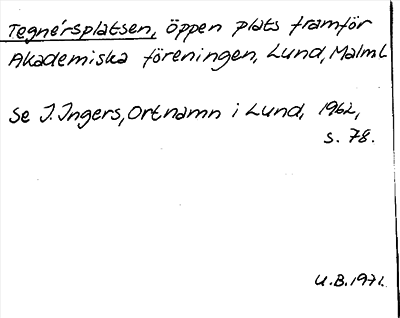 Tegnérsplatsen, öppen plats framför
Akademiska föreningen, Lund, MalmL
Se J. Ingers, Ortnamn i Lund, 1962,
s. 78.
U.B. 1971.